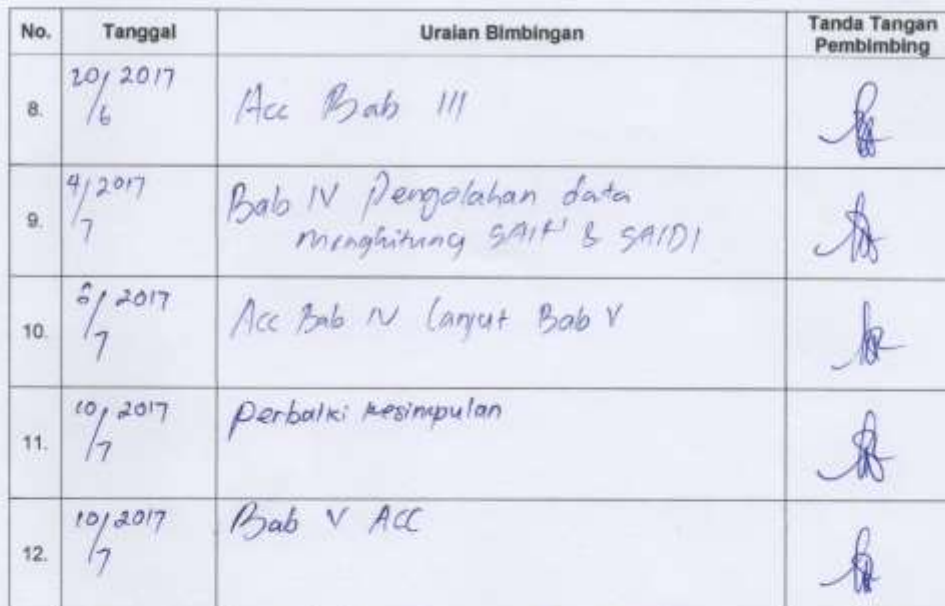 No. Tanggal Uraian Bimbingan Tanda Tangan
Pembimbing
8. 20/6 2017 Acc Bab III
9. 4/7 2017 Bab IV Pengolahan data
menghitung SAIFI & SAIDI
10. 6/7 2017 Acc Bab IV lanjut Bab V
11. 10/7 2017 Perbaiki kesimpulan
12. 10/7 2017 Bab V ACC